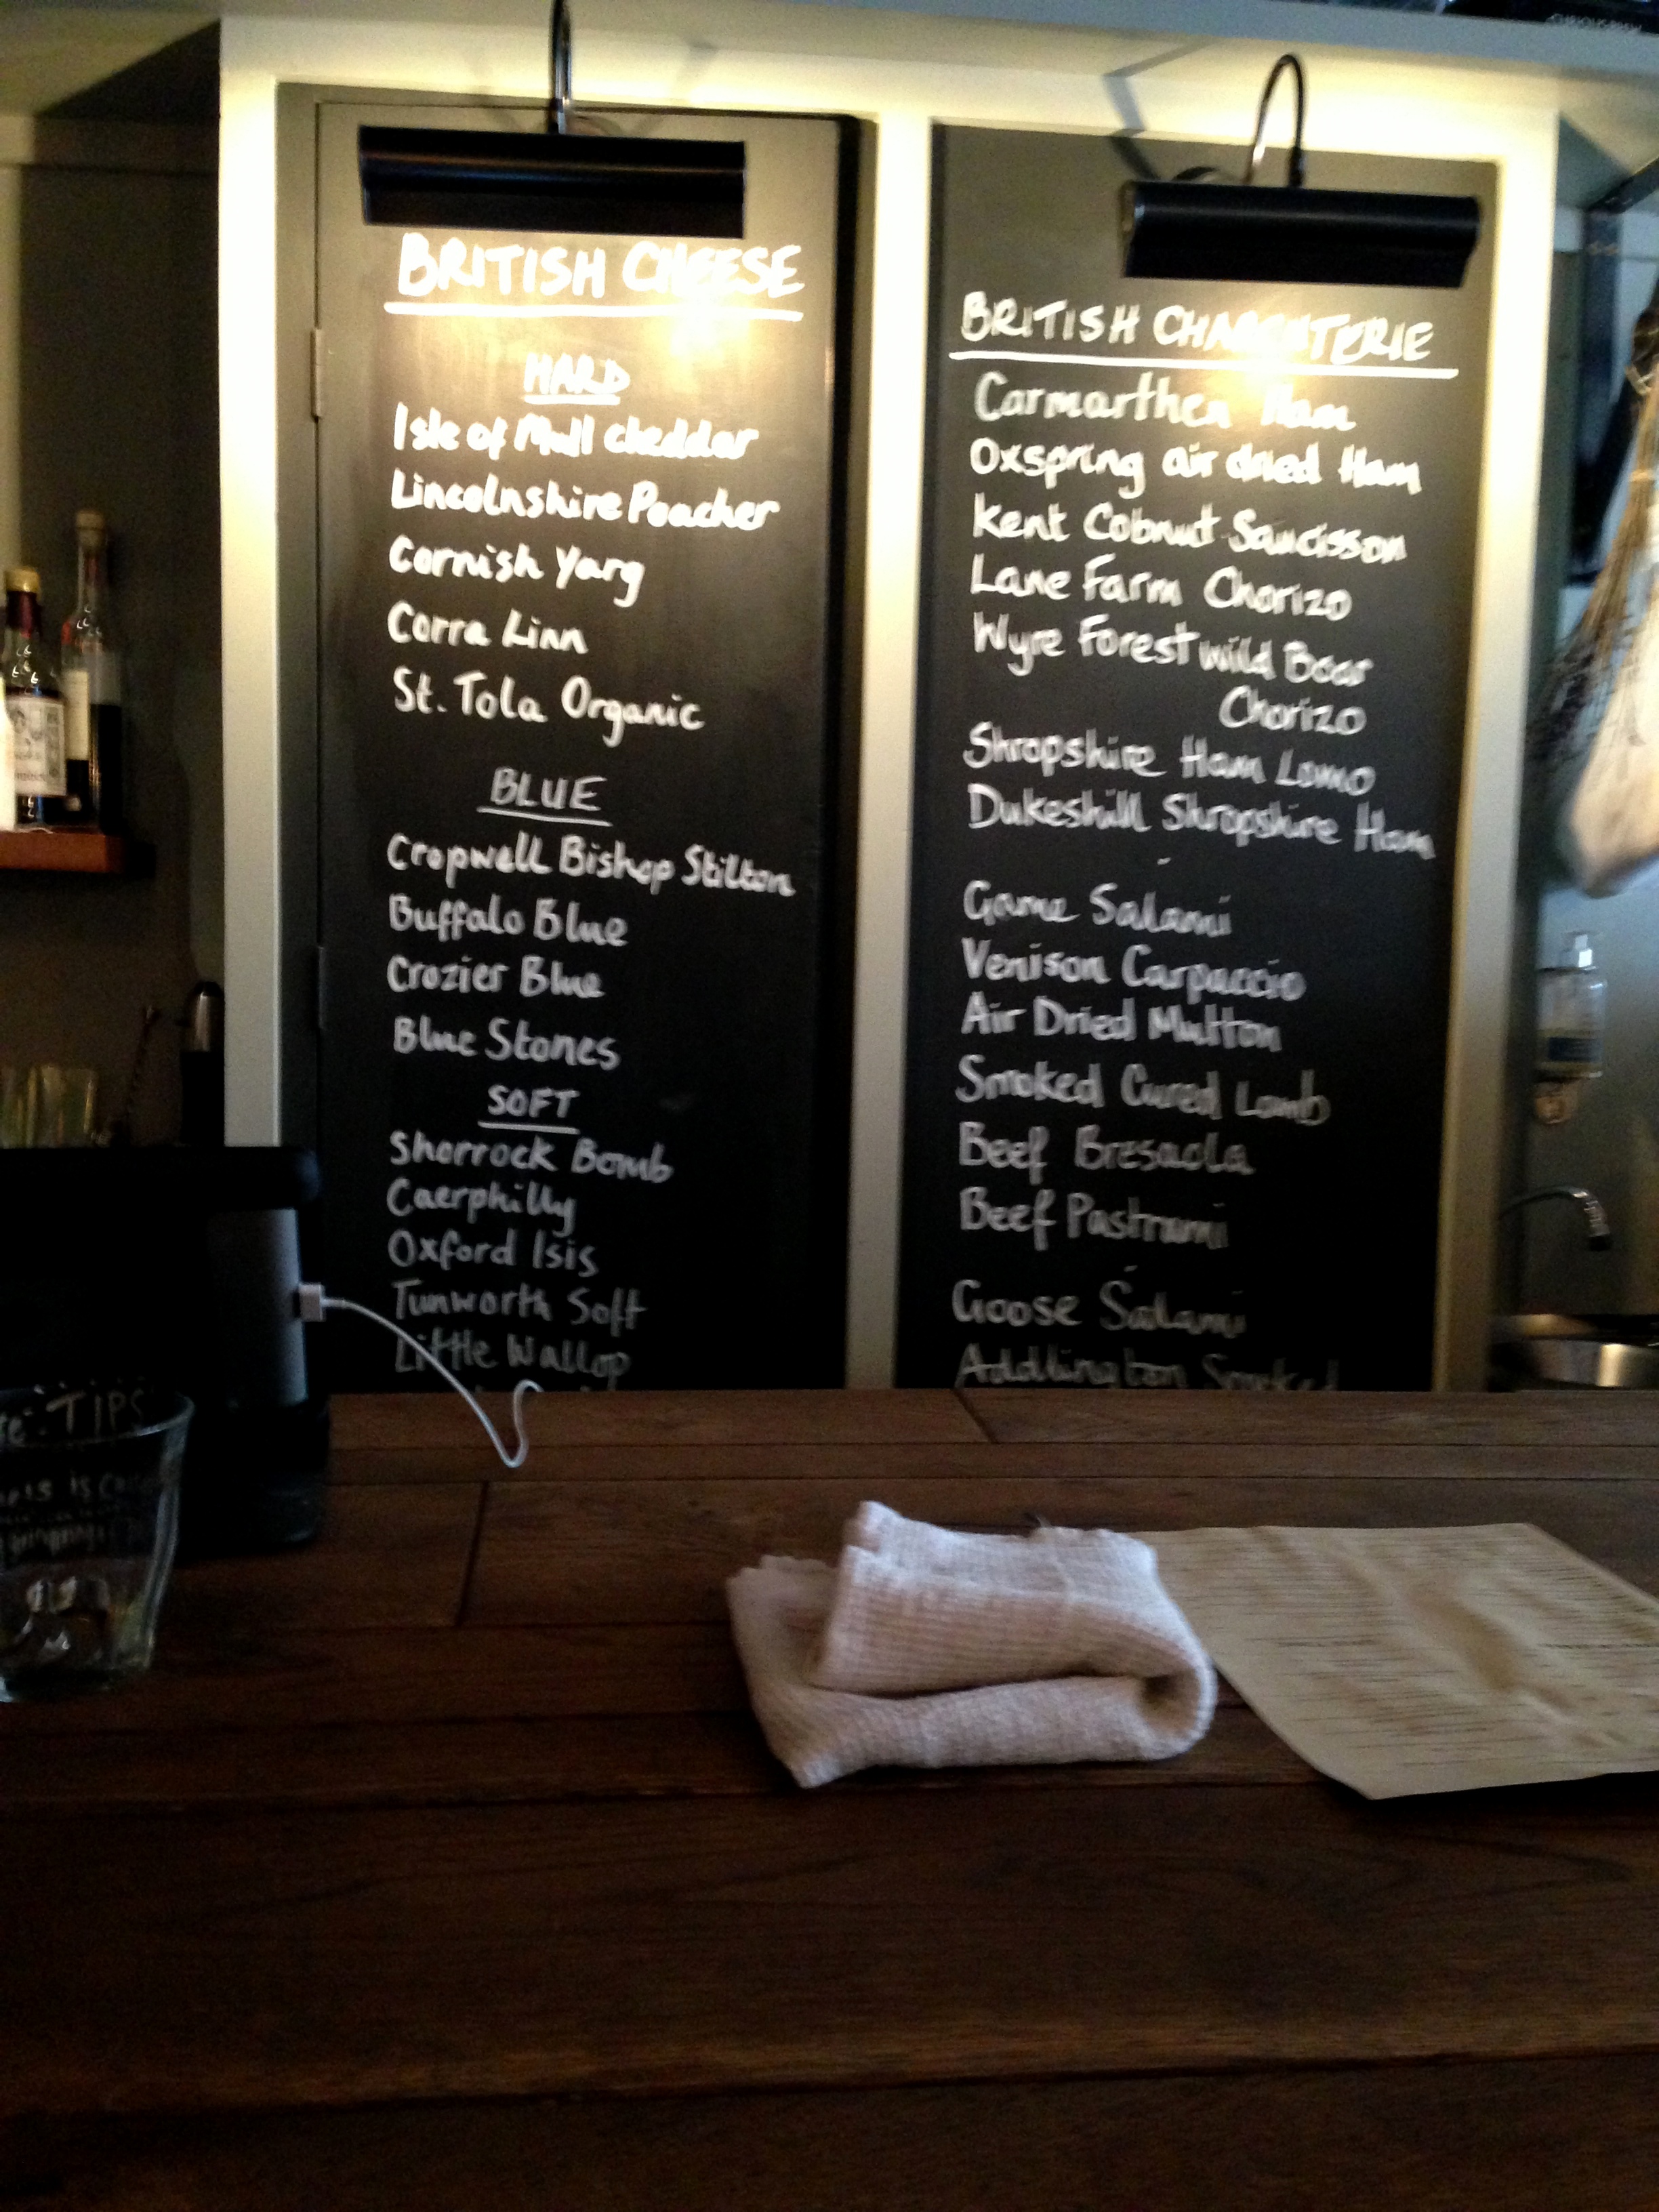 BRITISH CHEESE
HARD
Isle of Mull cheddar
Lincolnshire Poacher
Cornish Yarg
Corra Linn
St. Tola Organic
BLUE
Cropwell Bishop Stilton
Buffalo Blue
Crozier Blue
Blue Stones
SOFT
Shorrock Bomb
Caerphilly
Oxford Isis
Tunworth Soft
Little Wallop
BRITISH CHARCUTERIE
Carmarthen Ham
Oxspring air dried Ham
Kent Cobnut Saucisson
Lane Farm Chorizo
Wyre Forest wild Boar
Chorizo
Shropshire Ham Lomo
Dukeshill Shropshire Ham
-
Game Salami
Venison Carpaccio
Air Dried Mutton
Smoked Cured Lamb
Beef Bresaola
Beef Pastrami
-
Goose Salami
Addlington Smoked
TIPS
CURIOUS BREW